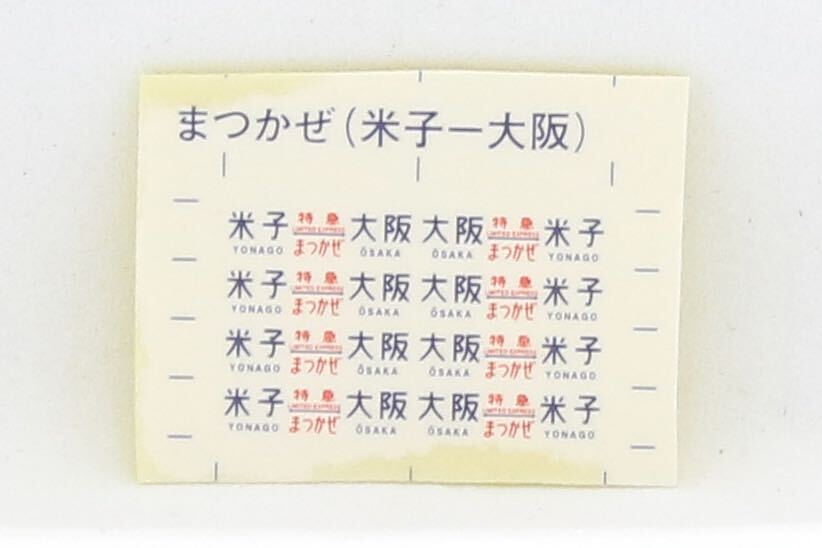 まつかぜ(米子ー大阪)
米子 特急 大阪 大阪 特急 米子
YONAGO LIMITED EXPRESS まつかぜ ŌSAKA ŌSAKA LIMITED EXPRESS まつかぜ YONAGO
米子 特急 大阪 大阪 特急 米子
YONAGO LIMITED EXPRESS まつかぜ ŌSAKA ŌSAKA LIMITED EXPRESS まつかぜ YONAGO
米子 特急 大阪 大阪 特急 米子
YONAGO LIMITED EXPRESS まつかぜ ŌSAKA ŌSAKA LIMITED EXPRESS まつかぜ YONAGO
米子 特急 大阪 大阪 特急 米子
YONAGO LIMITED EXPRESS まつかぜ ŌSAKA ŌSAKA LIMITED EXPRESS まつかぜ YONAGO